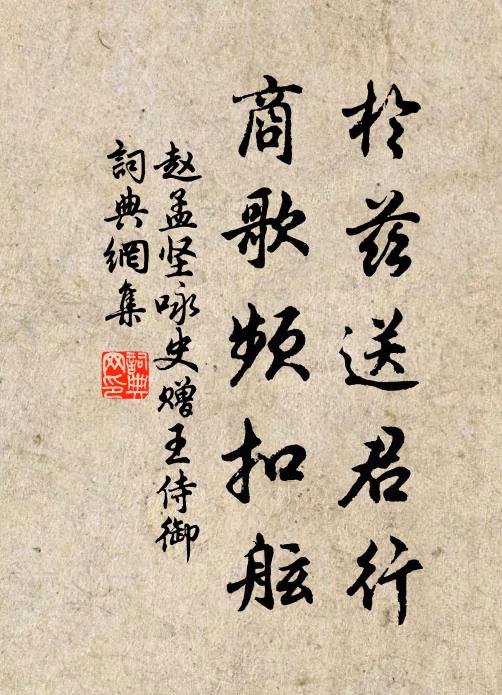 於兹送君行
商歌频扣舷
赵孟坚咏史赠王侍御
詞典網集
詞典网印